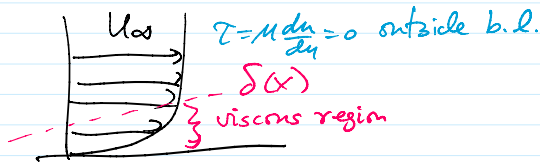 U∞ τ = μ du/dy = 0 outside b.l.
δ(x)
viscous region